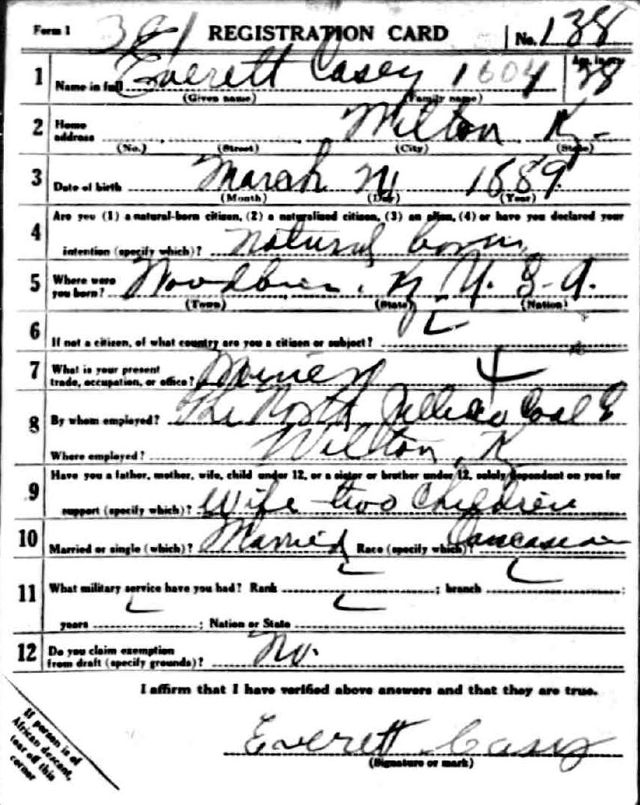 Form 1 381 REGISTRATION CARD No. 138
1 Name in full Everett Casey 1604 Age, in yrs. 28
(Given name) (Family name)
2 Home address Wilton Ky
(No.) (Street) (City) (State)
3 Date of birth March 1889
(Month) (Day) (Year)
4 Are you (1) a natural-born citizen, (2) a naturalized citizen, (3) an alien, (4) or have you declared your
intention (specify which)? natural born
5 Where were you born? Woodbine, Ky U. S. A.
(Town) (State) (Nation)
6 If not a citizen, of what country are you a citizen or subject?
7 What is your present trade, occupation, or office? Miner
8 By whom employed? The North Jellico Coal
Where employed? Wilton, Ky
9 Have you a father, mother, wife, child under 12, or a sister or brother under 12, solely dependent on you for
support (specify which)? Wife two Children
10 Married or single (which)? Married Race (specify which)? Caucasian
11 What military service have you had? Rank ; branch ;
years ; Nation or State
12 Do you claim exemption from draft (specify grounds)? No.
I affirm that I have verified above answers and that they are true.
Everett Casey
(Signature or mark)
If person is of
African descent,
tear off this
corner